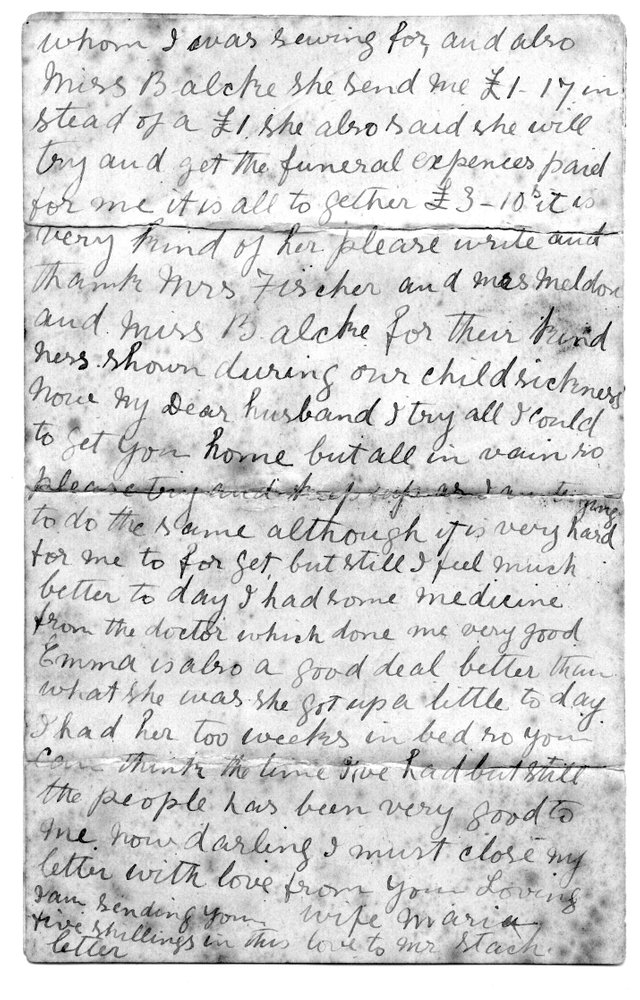 whom I was sewing for, and also
Miss Balcke she send me £1-17 in
stead of a £1, she also said she will
try and get the funeral expences paid
for me it is all to gether £3-10s it is
very kind of her please write and
thank Mrs Fischer and mrs Meldon
and Miss Balcke for their kind
ness shown during our child sickness
Now My Dear husband I try all I could
to get you home but all in vain so
please try and keep up as I am trying
to do the same although it is very hard
for me to for get, but still I feel much
better to day I had some medicine
from the doctor which done me very good
Emma is also a good deal better than
what she was she got up a little to day
I had her too weeks in bed so you
can think the time I've had but still
the people has been very good to
me. now darling I must close my
letter with love from your Loving
wife Maria
I am sending you
five shillings in this love to Mr Stach.
letter